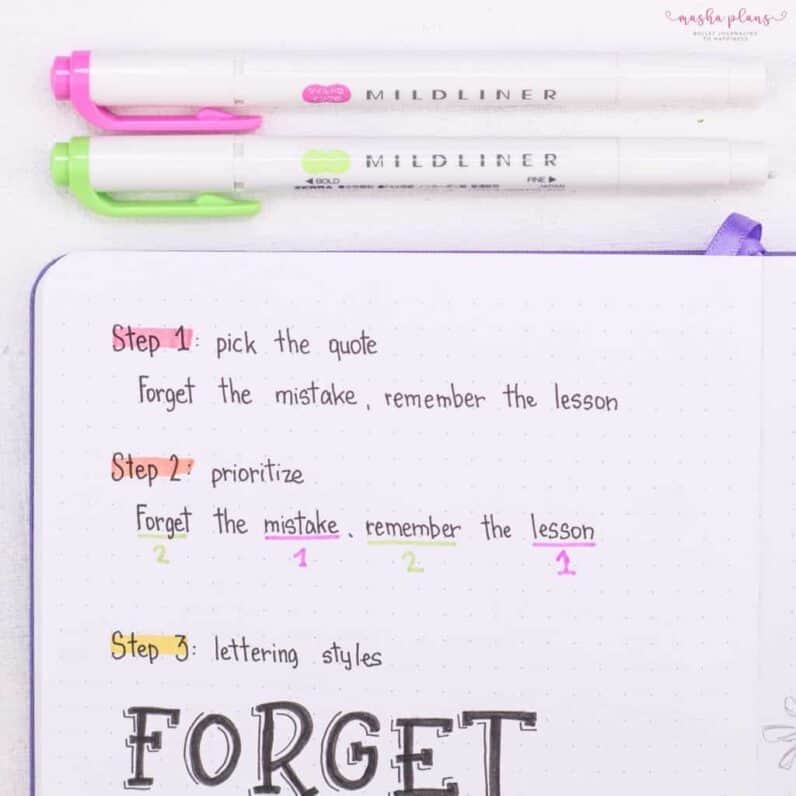 masha plans
BULLET JOURNALING
TO HAPPINESS
MILDLINER
MILDLINER
◀BOLD
FINE▶
ZEBRA
JAPAN
Step 1: pick the quote
Forget the mistake, remember the lesson
Step 2: prioritize
Forget the mistake, remember the lesson
2 1 2 1
Step 3: lettering styles
FORGET